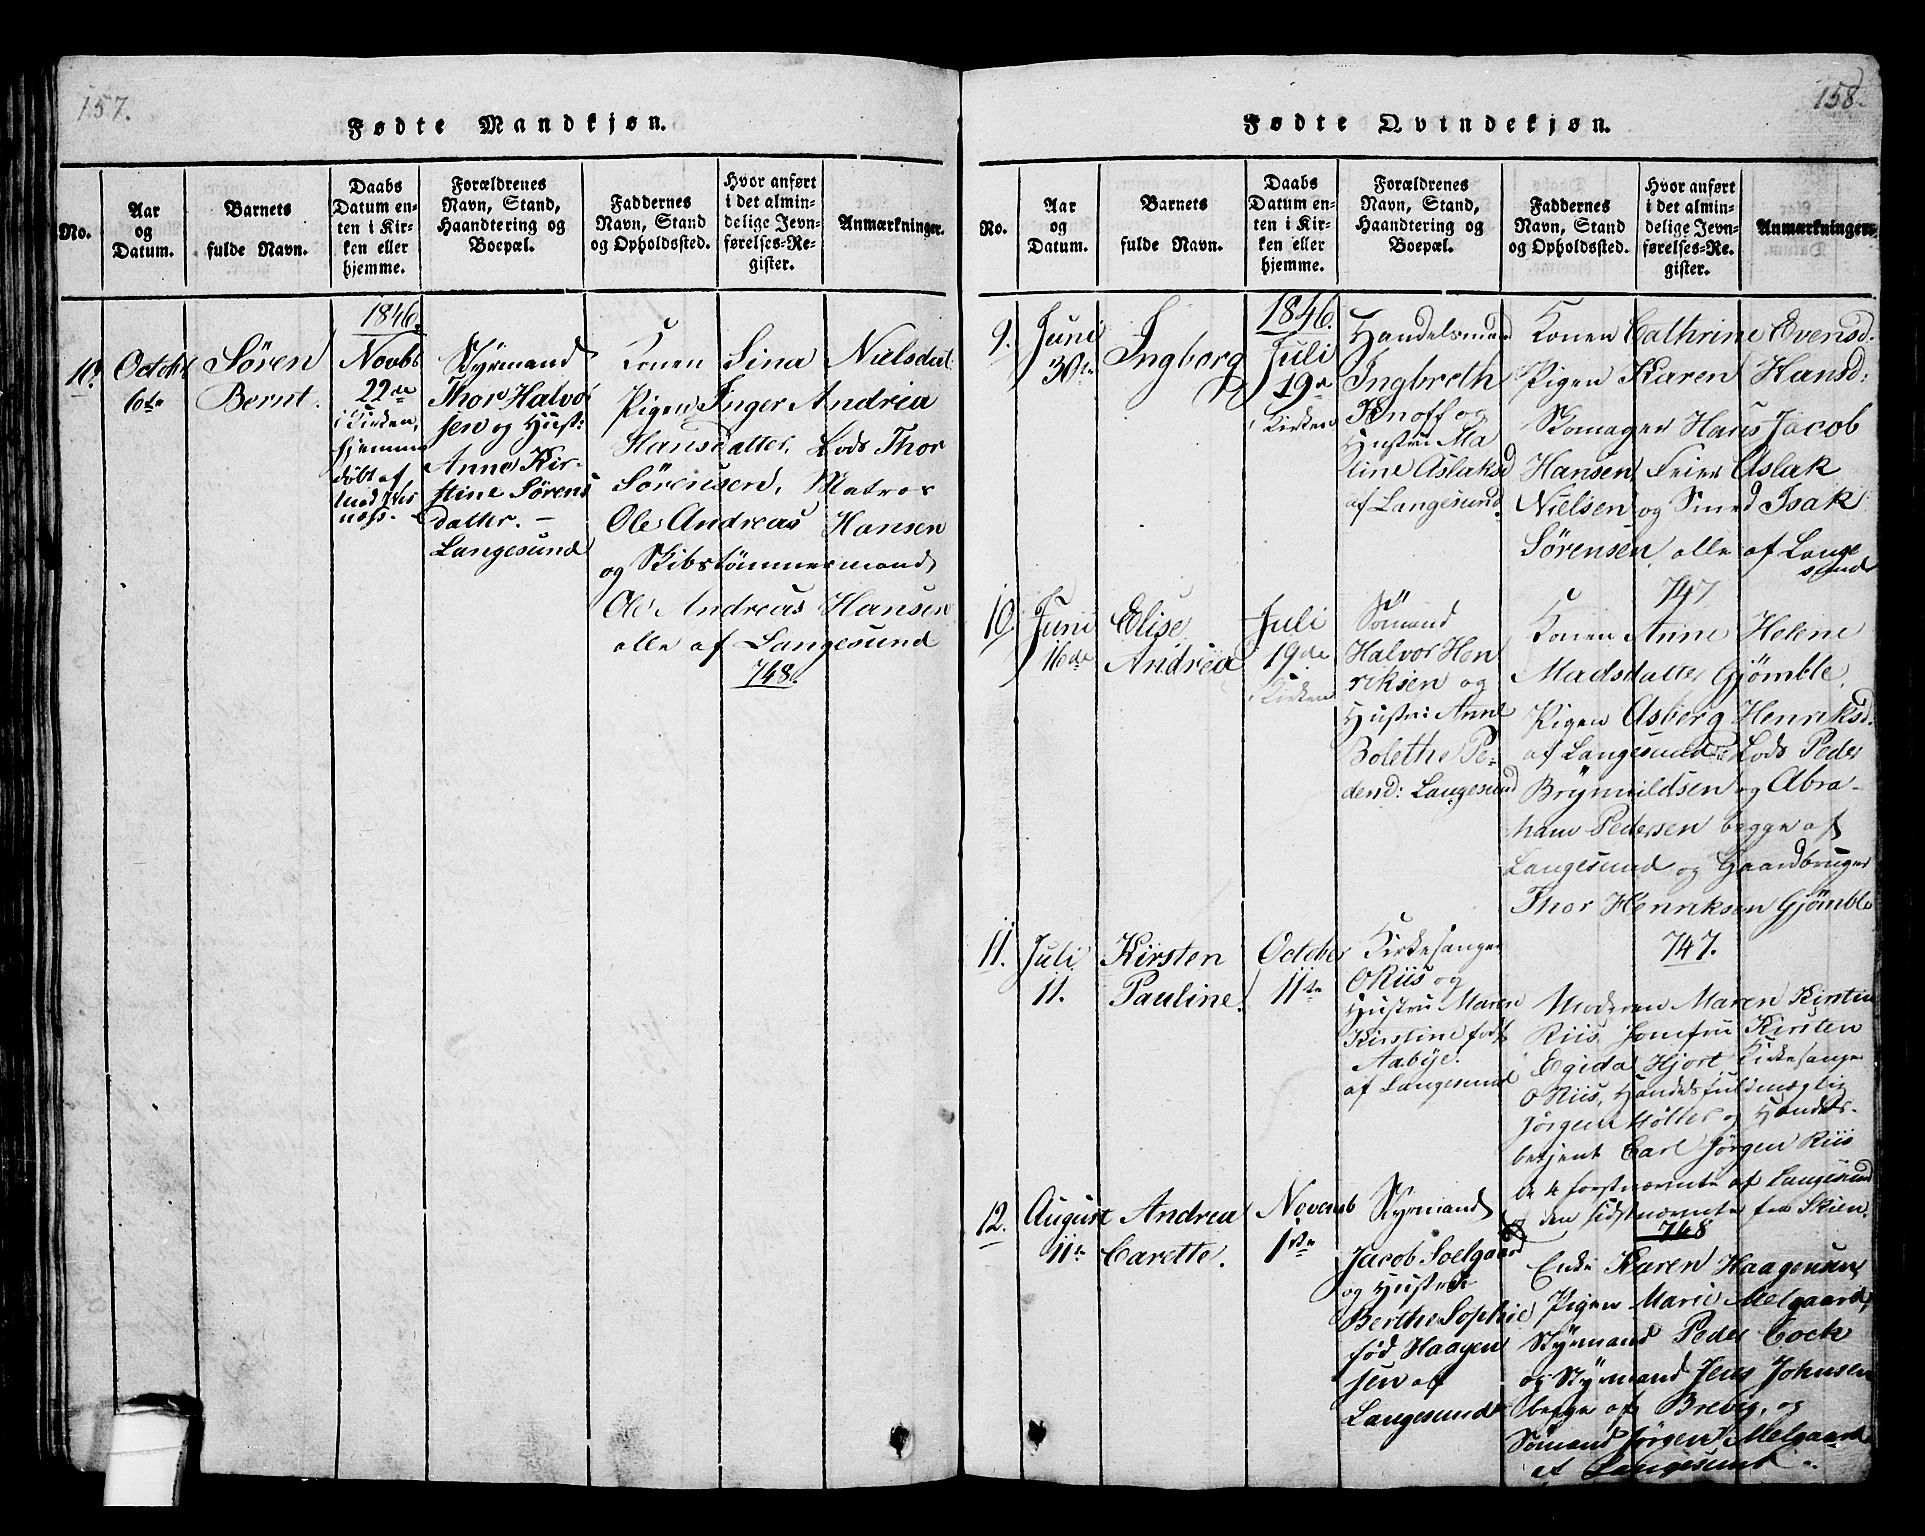 157.
Fødte Mandkjøn.
No.
Aar
og
Datum.
Barnets
fulde Navn.
Daabs
Datum en-
ten i Kir-
ken eller
hjemme.
Forældrenes
Navn, Stand,
Haandtering og
Boepæl.
Faddernes
Navn, Stand
og Opholdssted.
Hvor anført
i det almin-
delige Jevn-
førelses-Re-
gister.
Anmærkninger.
10.
October
6te
Søren
Bernt.
1846.
Novbr
22de
i Kirken,
hjemme
døbt af
Styrmand
Thor Halvor
sen og Hust:
Anne Kir-
stine Sørens
datter. –
Langesund
Konen Lina Nielsdat
Pigen Inger Andrea
Hansdatter, Lods Thor
Sørensen, Matros
Ole Andreas Hansen
og Skibstømmermand
Ole Andreas Hansen
alle af Langesund
748.
158.
Fødte Qvindekjøn.
No.
Aar
og
Datum.
Barnets
fulde Navn.
Daabs
Datum en-
ten i Kir-
ken eller
hjemme.
Forældrenes
Navn, Stand,
Haandtering og
Boepæl.
Faddernes
Navn, Stand
og Opholdssted.
Hvor anført
i det almin-
delige Jevn-
førelses-Re-
gister.
Anmærkninger.
9.
Juni
30te
Ingborg
1846.
Juli
19de
i Kirken
Handelsmand
Ingbreth
Knoff og
Hustru Ma
line Aslaksd
af Langesund.
Konen Cathrine Evensd.
Pigen Karen Hansd:
Skomager Hans Jacob
Hansen, Feier Aslak
Nielsen og Smed Isak
Sørensen, alle af Lange
sund
747
10.
Juni
16de
Elise
Andrea
Juli
19de
i Kirken
Sømand
Halvor Hen
riksen og
Hustru Anne
Bolethe Pe-
dersd: Langesund
Konen Anne Helene
Madsdatter Gjømble,
Pigen Asberg Henriksd.
af Langesund, Lods Peder
Brynnildsen og Abra-
ham Pedersen begge af
Langesund og Gaardbruger
Thor Henriksen Gjømble
747.
11.
Juli
11.
Kirsten
Pauline.
October
11te
Kirkesanger
O Riis og
Hustru Maren
Kirstine født
Aabye.
af Langesund
Moderen Maren Kirstine
Riis, Jomfru Kirsten
Egida Hjort, Kirkesanger
O Riis, Handelsfuldmægtig
Jørgen Møller og Handels-
betjent Carl Jørgen Riis
de 4 førstnævnte af Langesund
og den sidstnævnte fra Skien.
748
12.
August
11te
Andrea
Carette.
Novemb
1ste
Styrmand
Jacob Soelgaard
og Hustru
Berthe Sophie
fød Haagen
sen af
Langesund
Enke Karen Haagensen,
Pigen Marie Melgaard,
Styrmand Peder Cock
og Styrmand Jens Johnsen
begge af Brevig, og
Sømand Jørgen Melgaard
af Langesund.